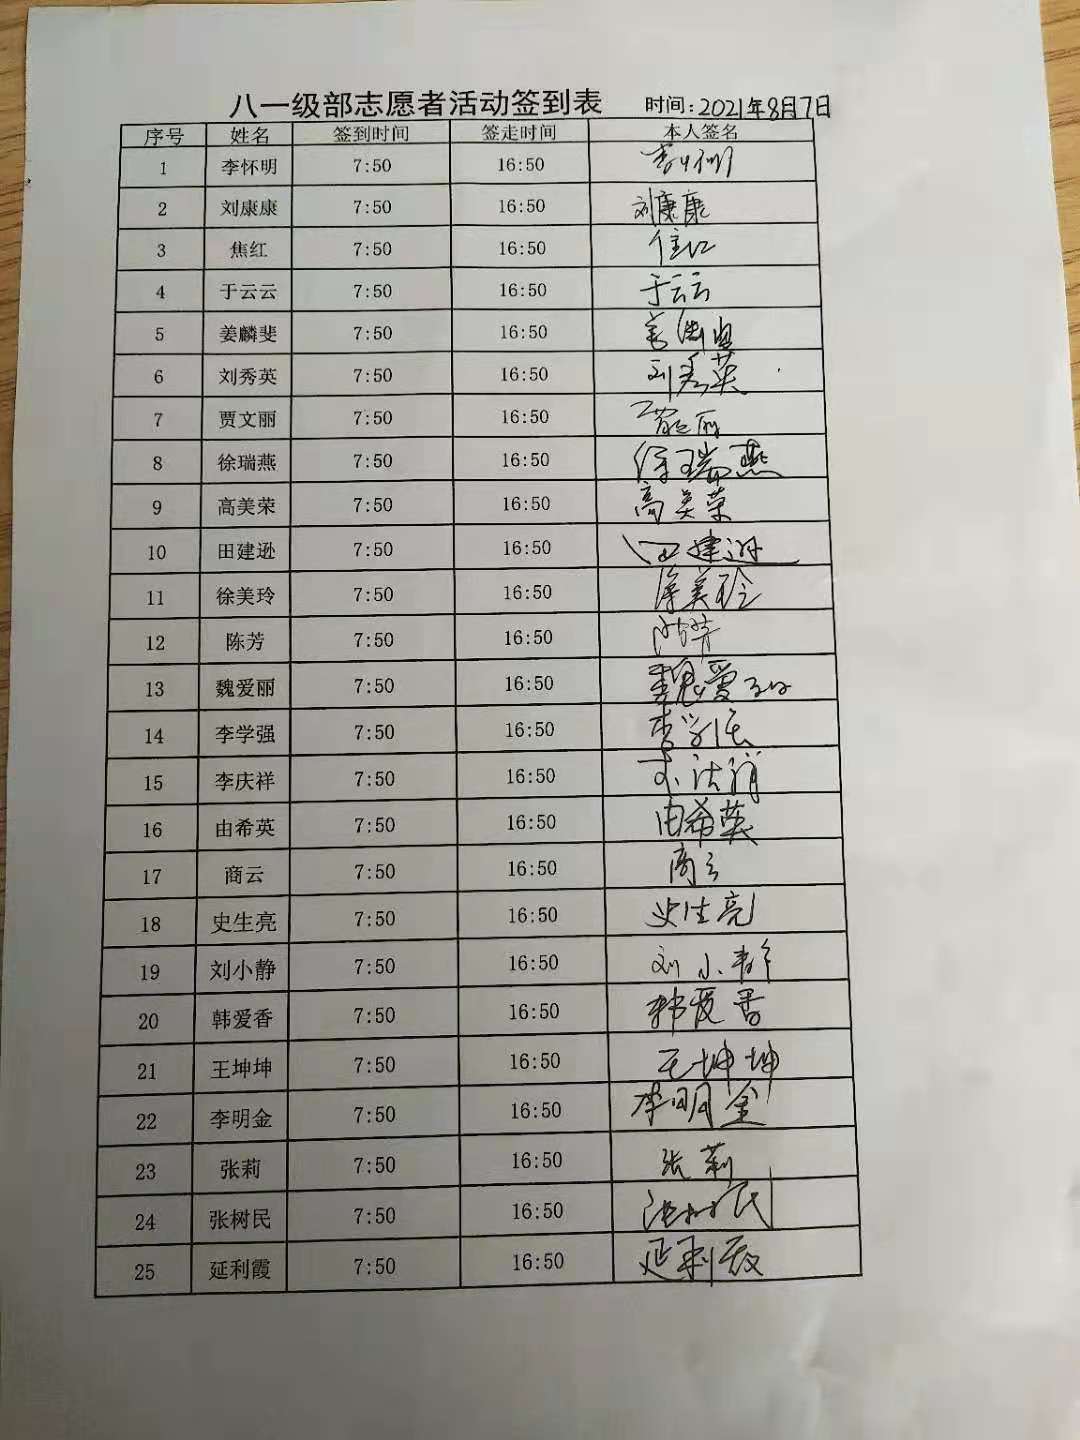 八一级部志愿者活动签到表 时间:2021年8月7日
序号 姓名 签到时间 签走时间 本人签名
1 李怀明 7:50 16:50
2 刘康康 7:50 16:50 刘康康
3 焦红 7:50 16:50
4 于云云 7:50 16:50 于云云
5 姜麟斐 7:50 16:50
6 刘秀英 7:50 16:50 刘秀英
7 贾文丽 7:50 16:50
8 徐瑞燕 7:50 16:50 徐瑞燕
9 高美荣 7:50 16:50 高美荣
10 田建逊 7:50 16:50 田建逊
11 徐美玲 7:50 16:50 徐美玲
12 陈芳 7:50 16:50
13 魏爱丽 7:50 16:50 魏爱丽
14 李学强 7:50 16:50 李学强
15 李庆祥 7:50 16:50
16 由希英 7:50 16:50 由希英
17 商云 7:50 16:50 商云
18 史生亮 7:50 16:50 史生亮
19 刘小静 7:50 16:50 刘小静
20 韩爱香 7:50 16:50 韩爱香
21 王坤坤 7:50 16:50 王坤坤
22 李明金 7:50 16:50 李明金
23 张莉 7:50 16:50 张莉
24 张树民 7:50 16:50 张树民
25 延利霞 7:50 16:50 延利霞